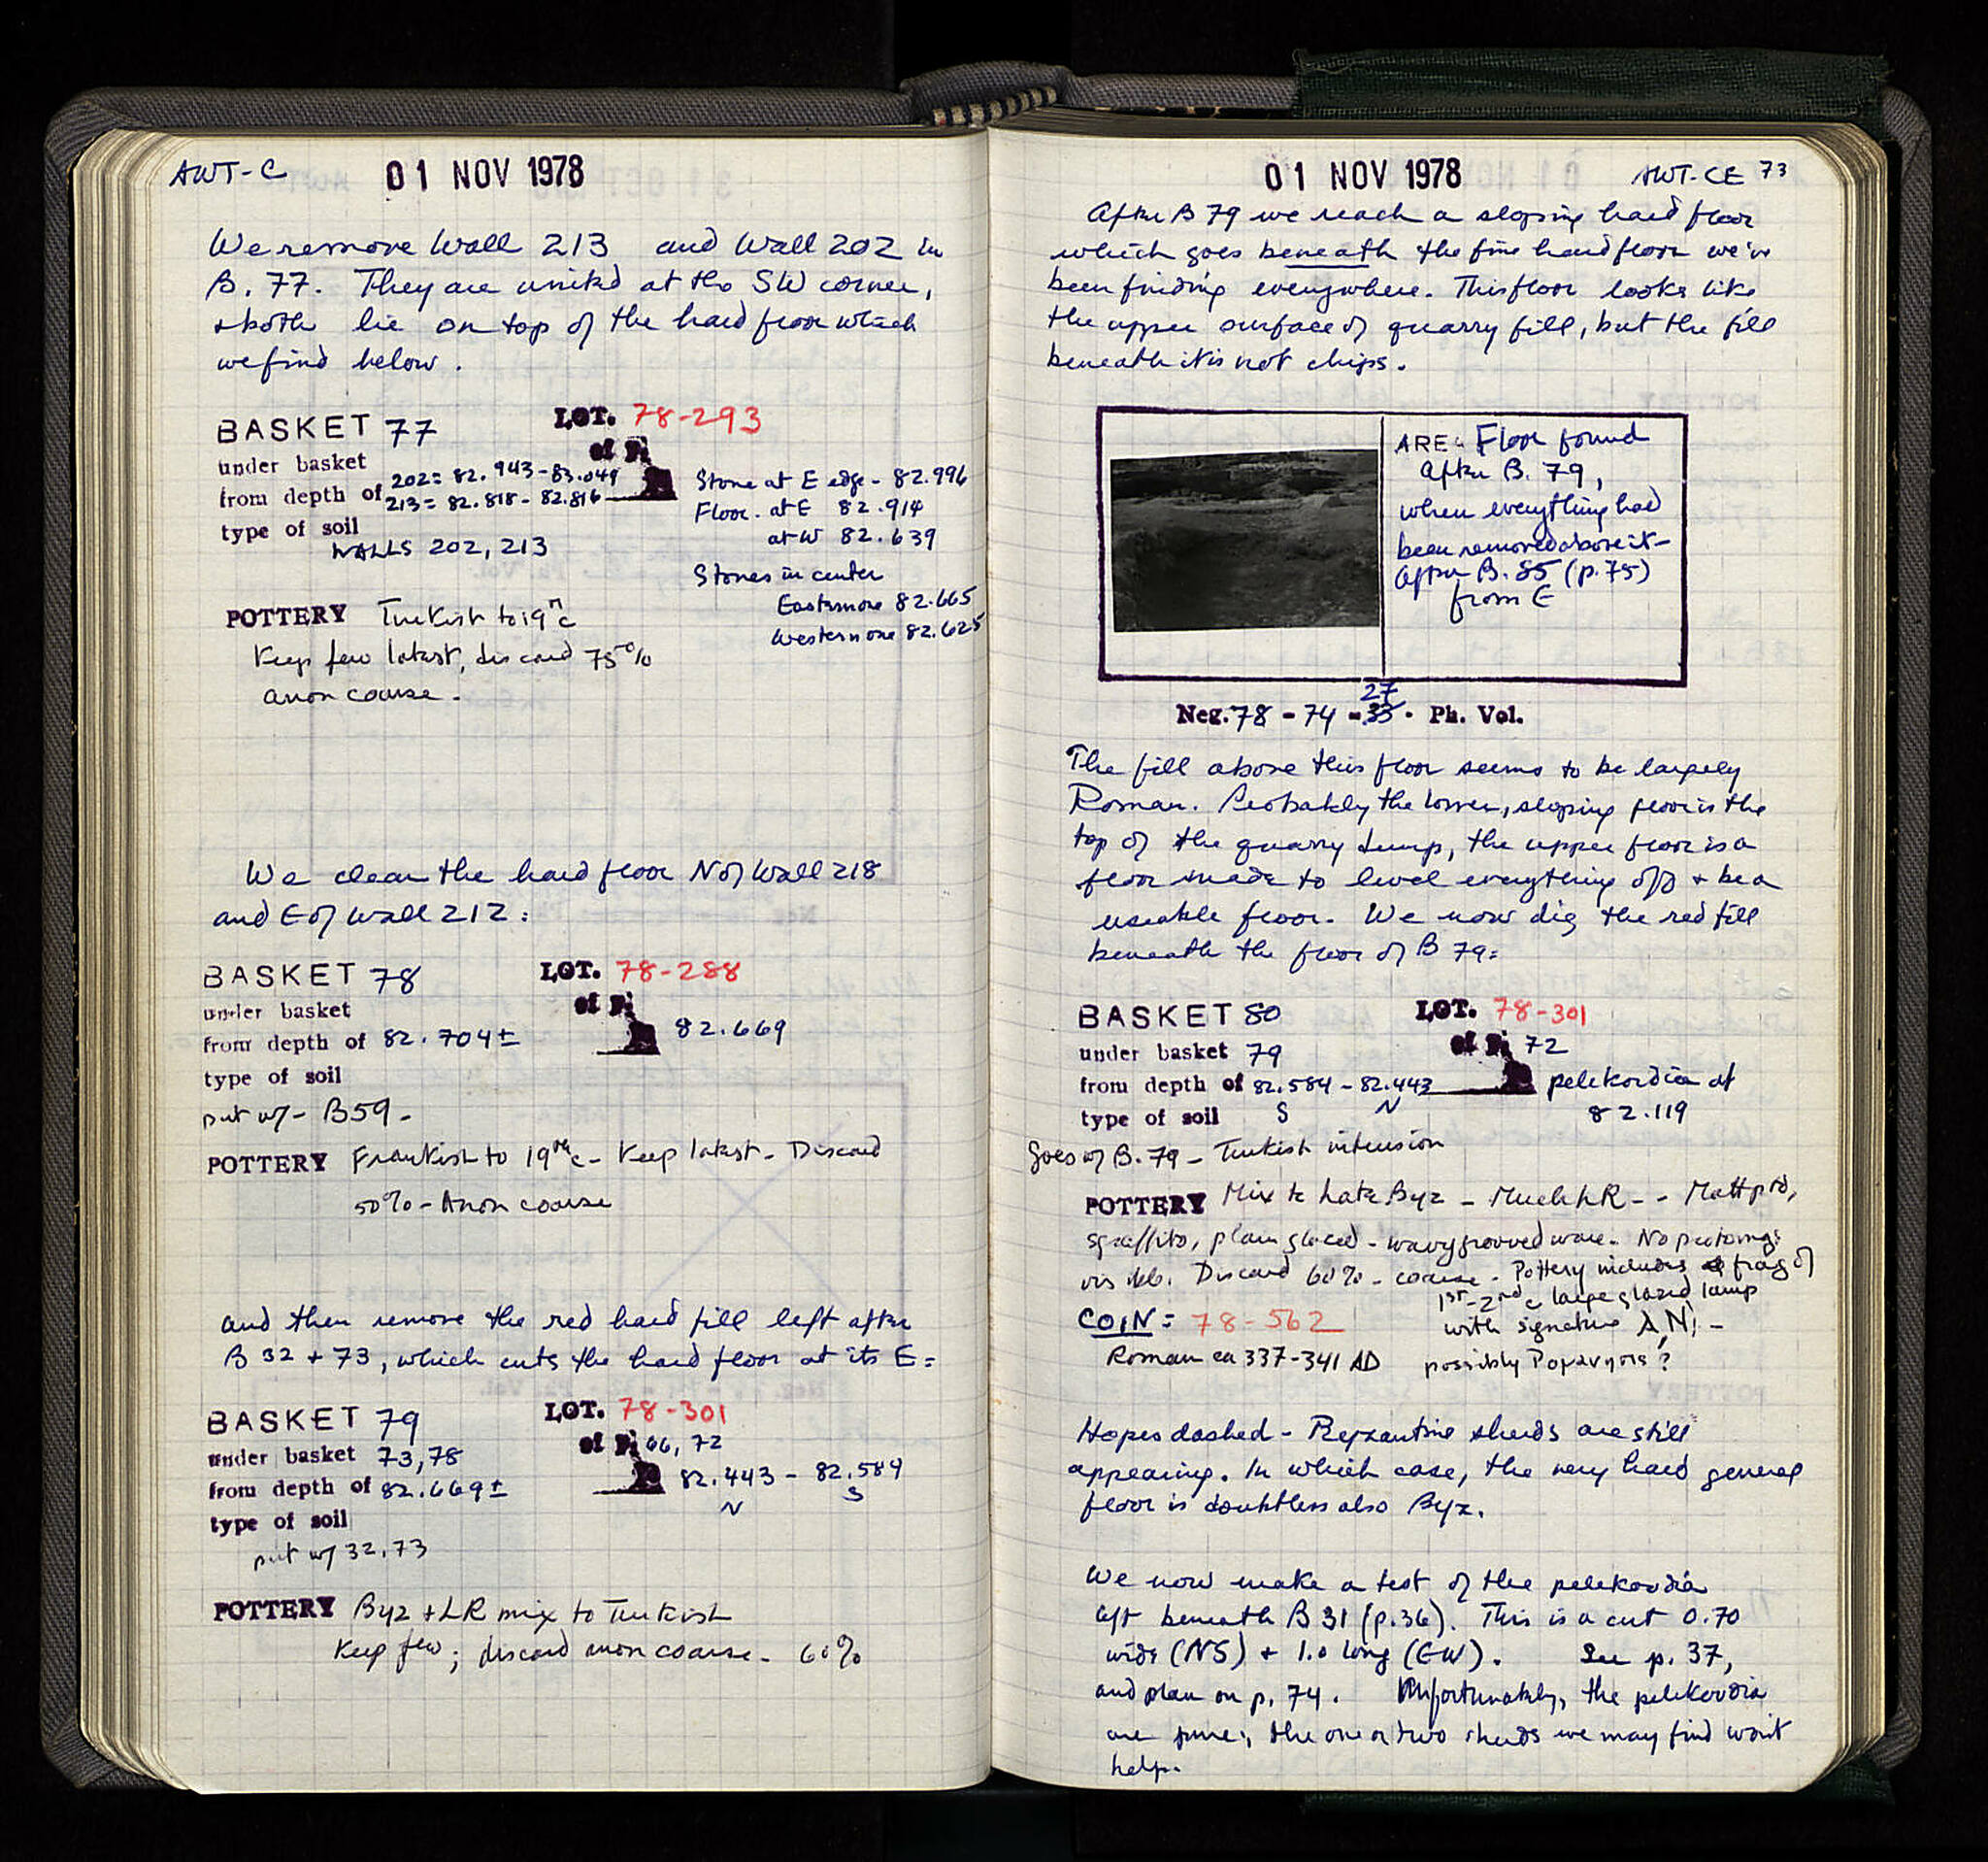 AWT-C 01 NOV 1978
We remove Wall 213 and Wall 202 in
B. 77. They are united at the SW corner,
+ both lie on top of the hard floor which
we find below.
BASKET 77 LOT. 78-293
under basket
from depth of 202= 82.943-83.049
213= 82.818-82.816
type of soil
WALLS 202, 213
Stone at E edge - 82.996
Floor. at E 82.914
at W 82.639
Stones in center
Easternmore 82.665
Western one 82.625
POTTERY Turkish to 19th c
Keep few latest, discard 75%
anon coarse.
We clean the hard floor N of Wall 218
and E of Wall 212:
BASKET 78 LOT. 78-288
under basket
from depth of 82.704± 82.669
type of soil
put w/- B59-
POTTERY Frankish to 19th c - Keep latest - Discard
50% - Anon coarse
and then remove the red hard fill left after
B 32 + 73, which cuts the hard floor at its E:
BASKET 79 LOT. 78-301
under basket 73,78 of Pi 66, 72
from depth of 82.669± 82.443 - 82.584
N S
type of soil
put w/ 32.73
POTTERY Byz + LR mix to Turkish
Keep few; discard anon coarse - 60%
01 NOV 1978 AWT-CE 73
After B 79 we reach a sloping hard floor
which goes beneath the fine hard floor we've
been finding everywhere. This floor looks like
the upper surface of quarry fill, but the fill
beneath it is not chips.
AREA Floor found
after B. 79,
when everything had
been removed above it -
after B. 85 (p. 75)
from E
27
Neg. 78 - 74 - 33 · Ph. Vol.
The fill above this floor seems to be largely
Roman. Probably the lower, sloping floor is the
top of the quarry dump, the upper floor is a
floor made to level everything off + be a
useable floor. We now dig the red fill
beneath the floor of B 79:
BASKET 80 LOT. 78-301
under basket 79 of Pi 72
from depth of 82.584 - 82.443 pelekoudia at
type of soil S N 82.119
Goes w/ B. 79 - Turkish intrusion
POTTERY Mix to Late Byz - Much LR - - Matt ptd,
sgraffito, plain glazed - wavy grooved ware. No
visible. Discard 60% - coarse - Pottery includes frag of
1st-2nd c large glazed lamp
COIN= 78-562 with signature
Roman ca 337-341 AD possibly ?
Hopes dashed - Byzantine sherds are still
appearing. In which case, the very hard general
floor is doubtless also Byz.
We now make a test of the pelekoudia
left beneath B 31 (p.36). This is a cut 0.70
wide (NS) + 1.0 long (EW). See p. 37,
and plan on p. 74. Unfortunately, the pelekoudia
are pure; the one or two sherds we may find won't
help.